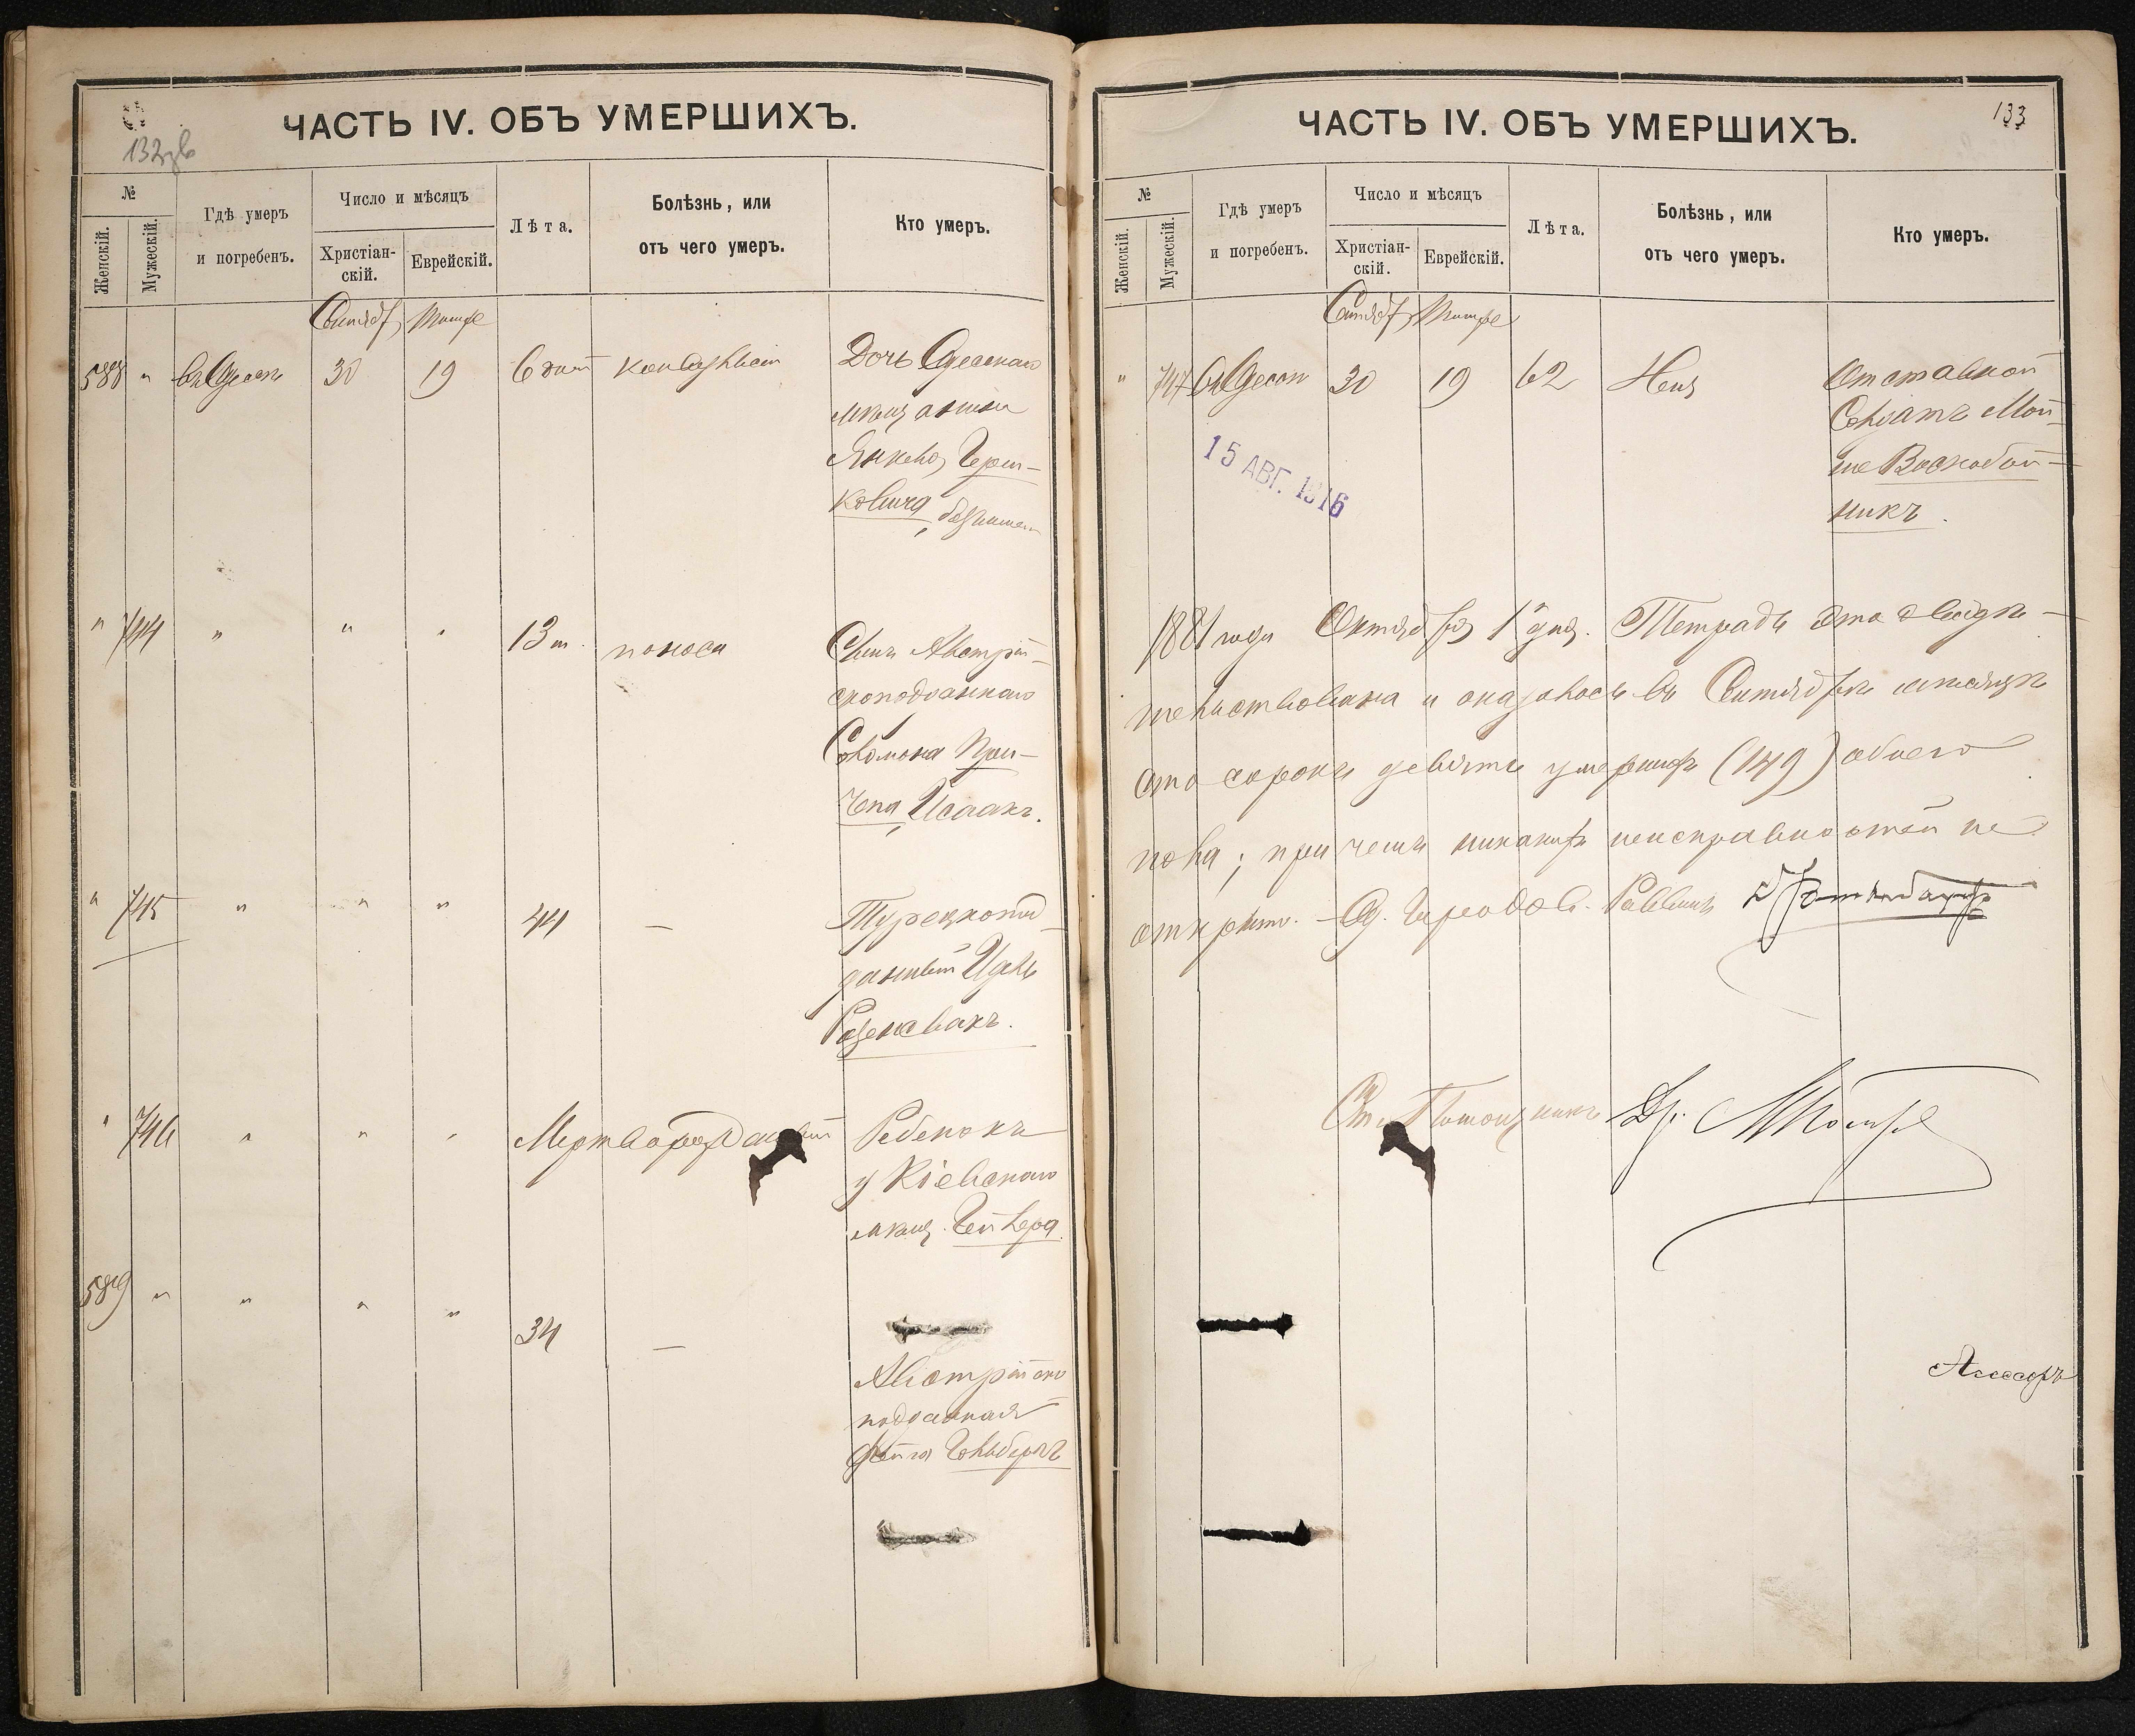 ЧАСТЬ IV. ОБЪ УМЕРШИХЪ.
№
Женскій.
Мужескій.
Гдѣ умеръ
и погребенъ.
Число и мѣсяцъ
Христіан-
скій.
Еврейскій.
Лѣта.
Болѣзнь, или
отъ чего умеръ.
Кто умеръ.
Сентябр. Тишре
588 " въ Одессѣ 30 19 6 дней конвульсіи
Дочь Одесскаго
мѣщанина
Янкеля Герш-
ковича, безъимен.
" 744 " " " 13 м. поноса
Сынъ Австрій-
скоподданнаго
Соломона
Исаакъ.
" 745 " " " 44 —
Турецкопод-
данный Идель
" 746 " " " Мертворожденный
Ребенокъ
у Кіевскаго
мѣщ.
589 " " " " 34 —
Австрійско
подданная
ЧАСТЬ IV. ОБЪ УМЕРШИХЪ.
133
№
Женскій.
Мужескій.
Гдѣ умеръ
и погребенъ.
Число и мѣсяцъ
Христіан-
скій.
Еврейскій.
Лѣта.
Болѣзнь, или
отъ чего умеръ.
Кто умеръ.
Сентябр. Тишре
" 747 въ Одессѣ 30 19 62
Отставной
Солдатъ Мой-
ше Воскобой-
никъ.
15 АВГ. 1916
1881 года Октября 1 дня. Тетрадь эта свидѣ-
тельствована и оказалось въ Сентябрѣ мѣсяцѣ
сто сорокъ девять умершихъ (149) обоего
пола; при чемъ никакихъ неисправностей не
открыто. — Од. Городов. Раввинъ
Др.
Асесоръ